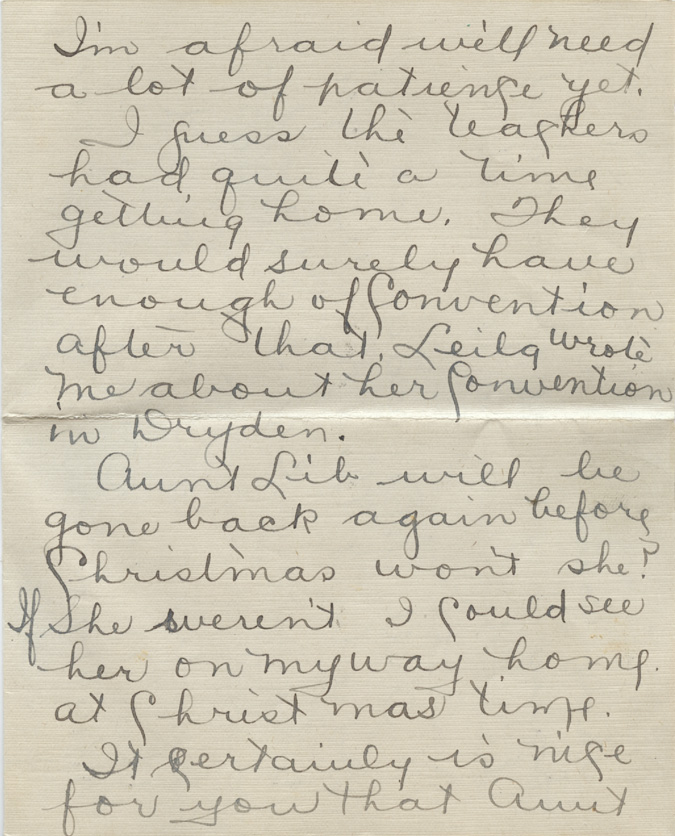 I'm afraid we'll need
a lot of patience yet.
I guess the teachers
had quite a time
getting home. They
would surely have
enough of Convention
after that. Leila wrote
me about her Convention
in Dryden.
Aunt Lib will be
gone back again before
Christmas won't she?
If She weren't I Could see
her on my way home
at Christmas time.
It Certainly is nice
for you that Aunt